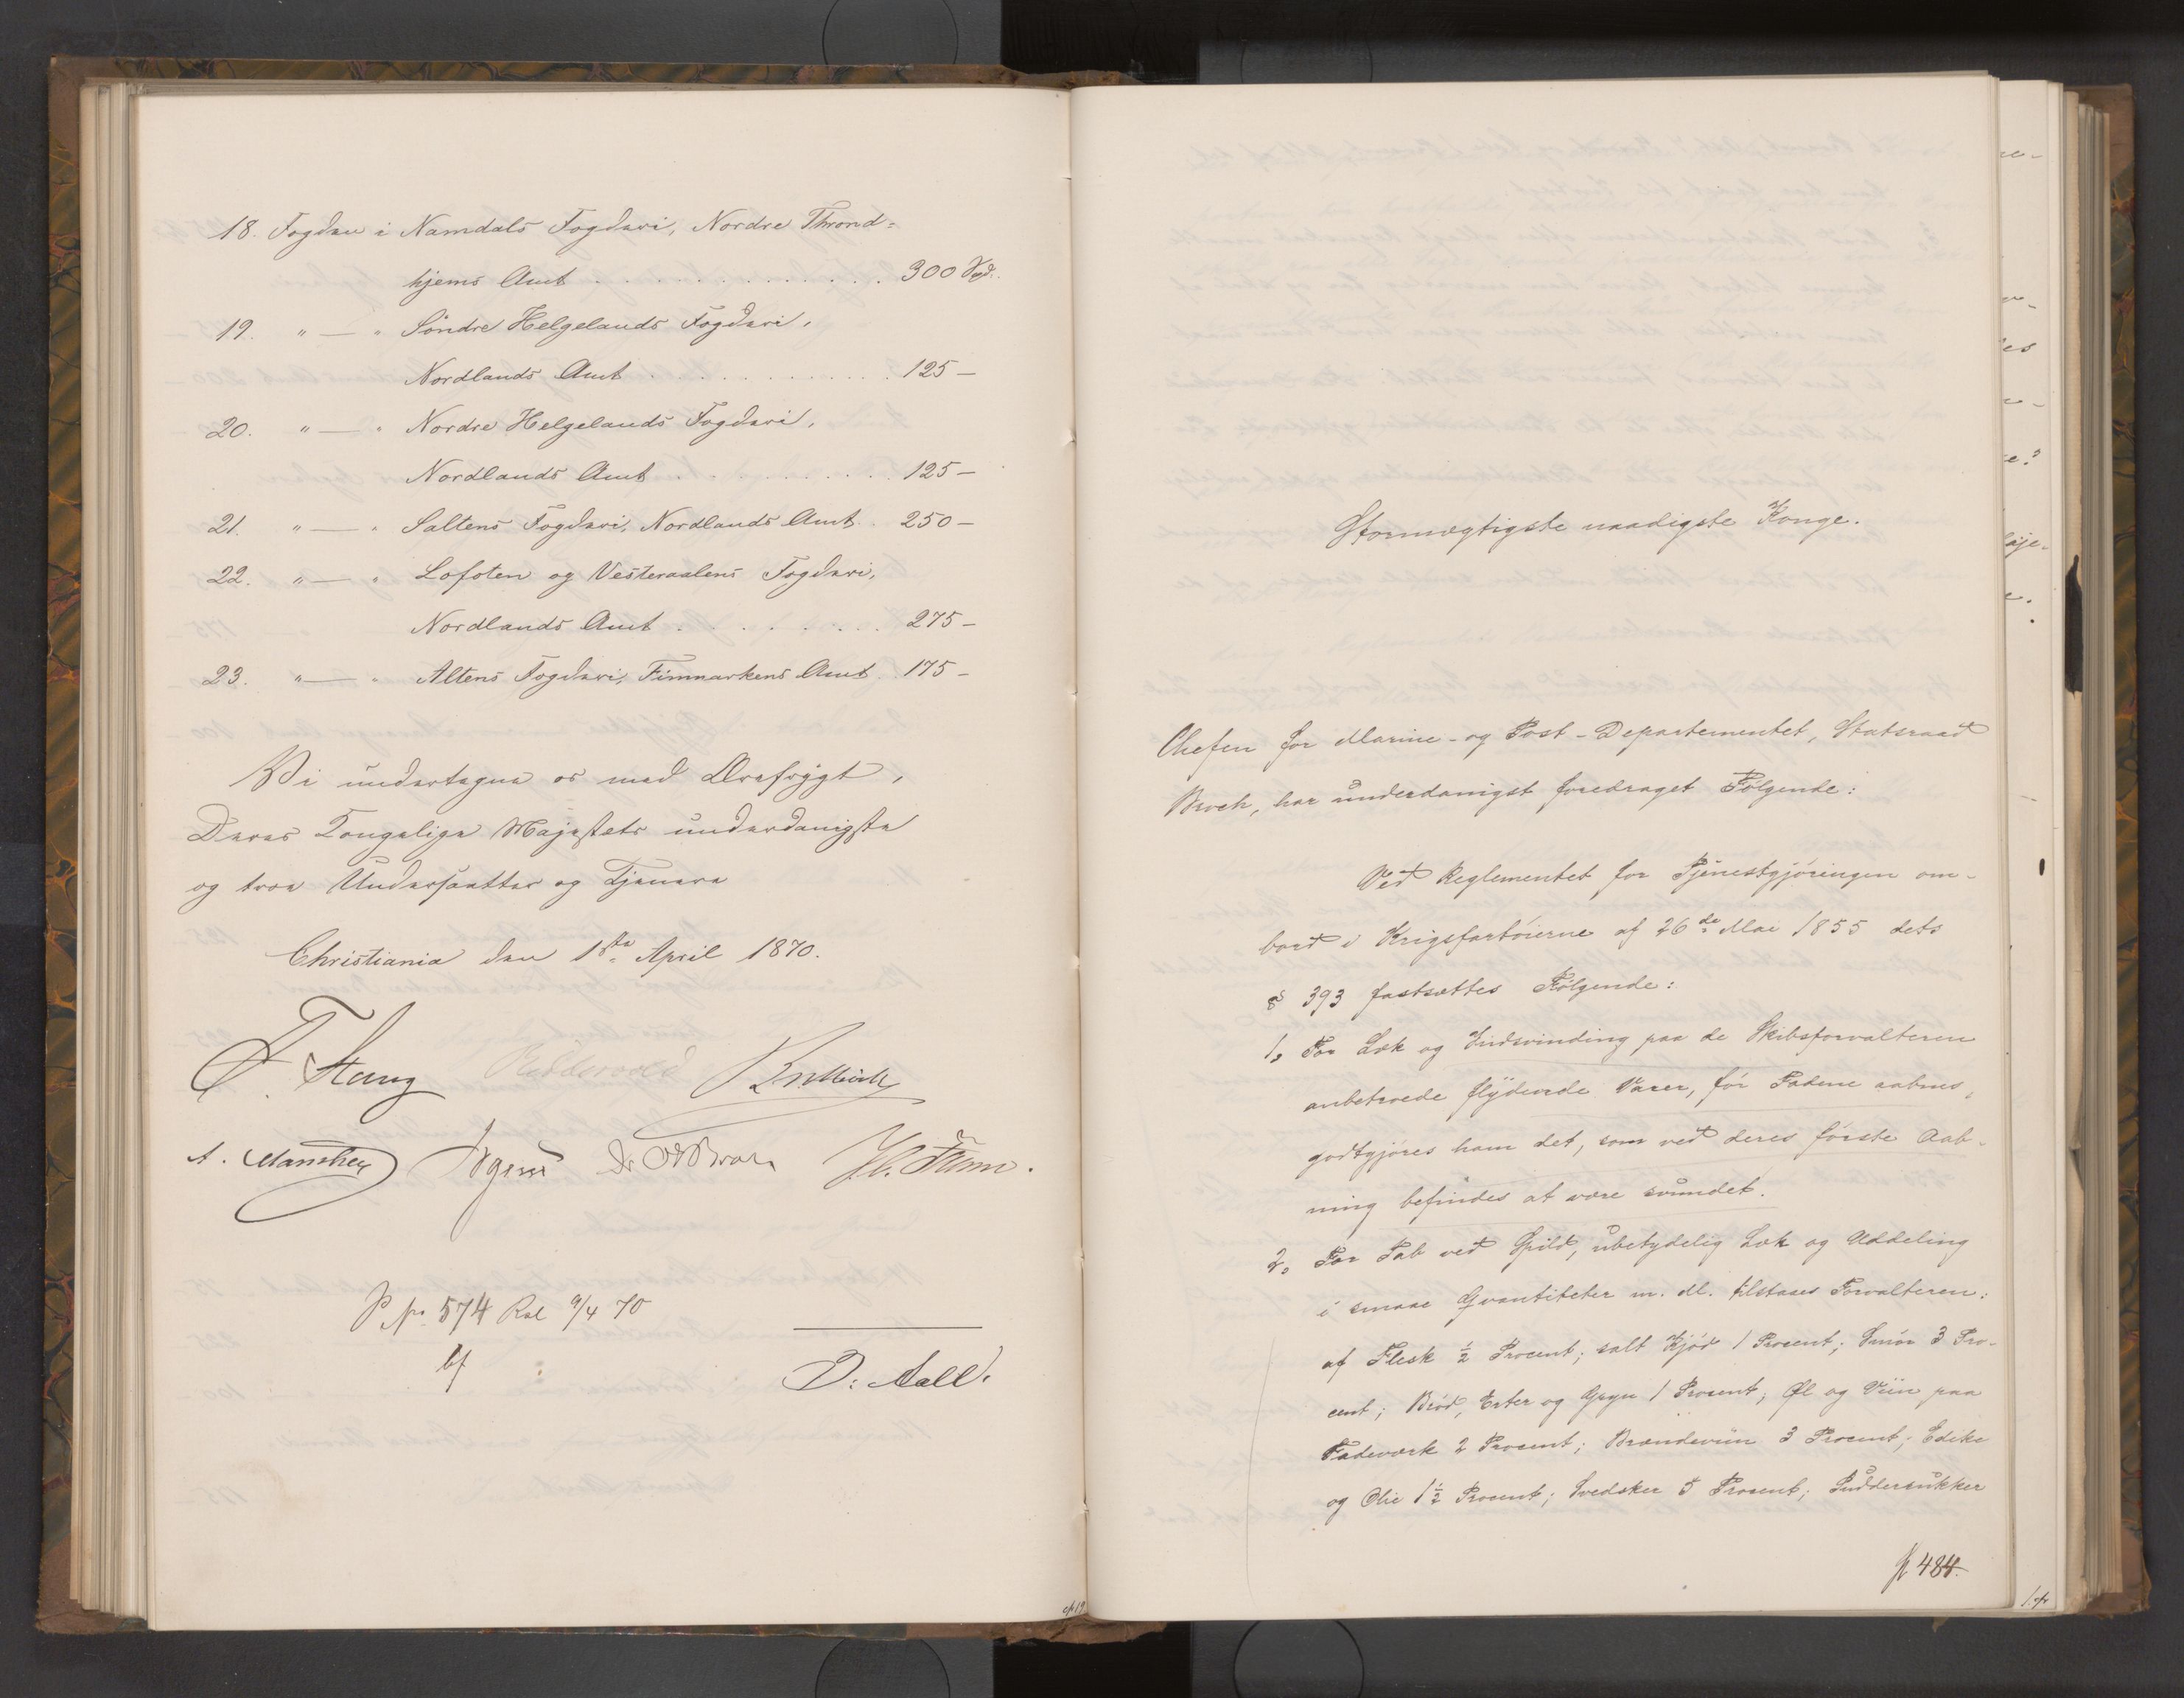 18. Fogden i Namdals Fogderi, Nordre Thrond=
hjems Amt . . . . . . . . . . . . . 300 Spd.
19. " — " Söndre Helgelands Fogderi,
Nordlands Amt . . . . . . . . . . . . 125 —
20. " — " Nordre Helgelands Fogderi,
Nordlands Amt . . . . . . . . . . . 125 —
21. " — " Saltens Fogderi, Nordlands Amt . 250 —
22. " — " Lofoten og Vesteraalens Fogderi,
Nordlands Amt . . . . . . . . . . 275 —
23. " — " Altens Fogderi, Finmarkens Amt . 175 —
Vi undertegne os med Ærefrygt,
Deres Kongelige Majestets underdanigste
og troe Undersaatter og Tjenere
Christiania den 1ste April 1870.
F. Stang Riddervold
A. Manthey Irgens Dr OJBroch H. Helliesen
P No 574 Ral 9/4 70
bf
D: Aall.
Stormægtigste naadigste Konge.
Chefen for Marine- og Post-Departementet, Statsraad
Broch, har underdanigst foredraget Følgende:
Ved Reglementet for Tjenestgjøringen om-
bord i Krigsfartöierne af 26de Mai 1855 dets
§ 393 fastsættes Følgende:
1, For Læk og Indsvinding paa de Skibsforvalteren
anbetroede flydende Varer, för Fadene aabnes,
godtgjöres ham det, som ved deres förste Aab-
ning befindes at være svundet.
2, For Tab ved Spild, ubetydelig Læk og Uddeling
i smaae Qvantiteter m. M. tilstaaes Forvalteren:
af Flesk ½ Procent; salt Kjød 1 Procent; Smör 3 Pro-
cent; Bröd, Erter og Gryn 1 Procent; Øl og Viin paa
Fadeværk 2 Procent; Brændeviin 3 Procent; Edike
og Olie 1½ Procent; Svedsker 5 Procent; Puddersukker
484.